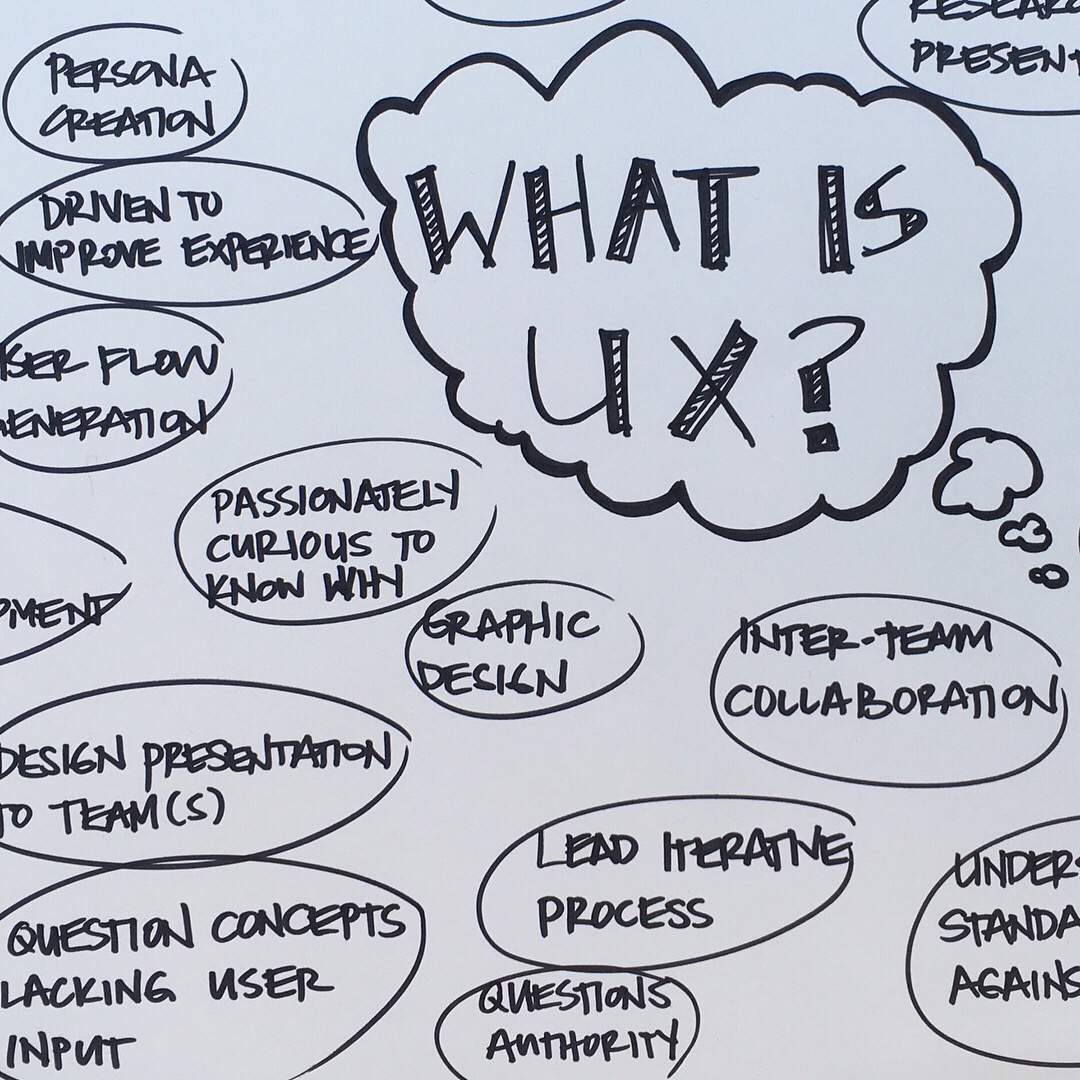 PERSONA
CREATION
DRIVEN TO
IMPROVE EXPERIENCE
USER FLOW
GENERATION
WHAT IS
UX?
PASSIONATELY
CURIOUS TO
KNOW WHY
GRAPHIC
DESIGN
INTER-TEAM
COLLABORATION
DESIGN PRESENTATION
TO TEAM(S)
LEAD ITERATIVE
PROCESS
UNDER-
QUESTION CONCEPTS
LACKING USER
INPUT
QUESTIONS
AUTHORITY